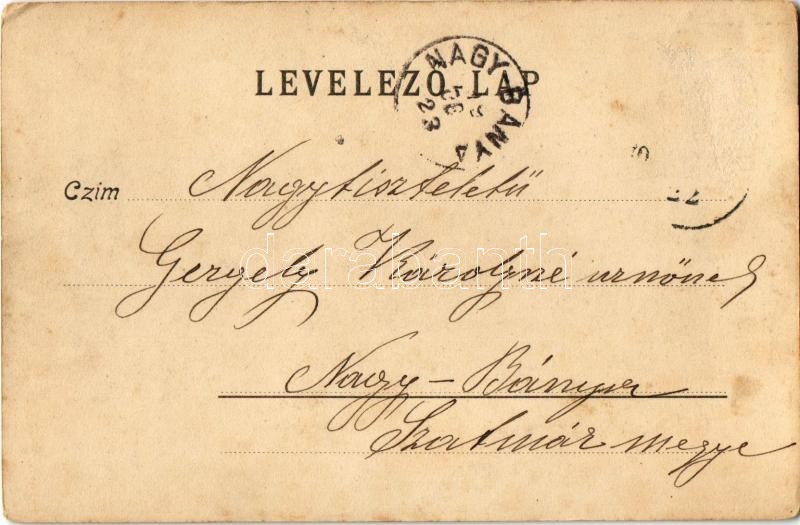 LEVELEZŐ LAP
NAGY BÁNYA
23
Czim Nagytiszteletű
Gergely Károlyné urnőnek
Nagy-Bánya
Szatmár megye
darabanth